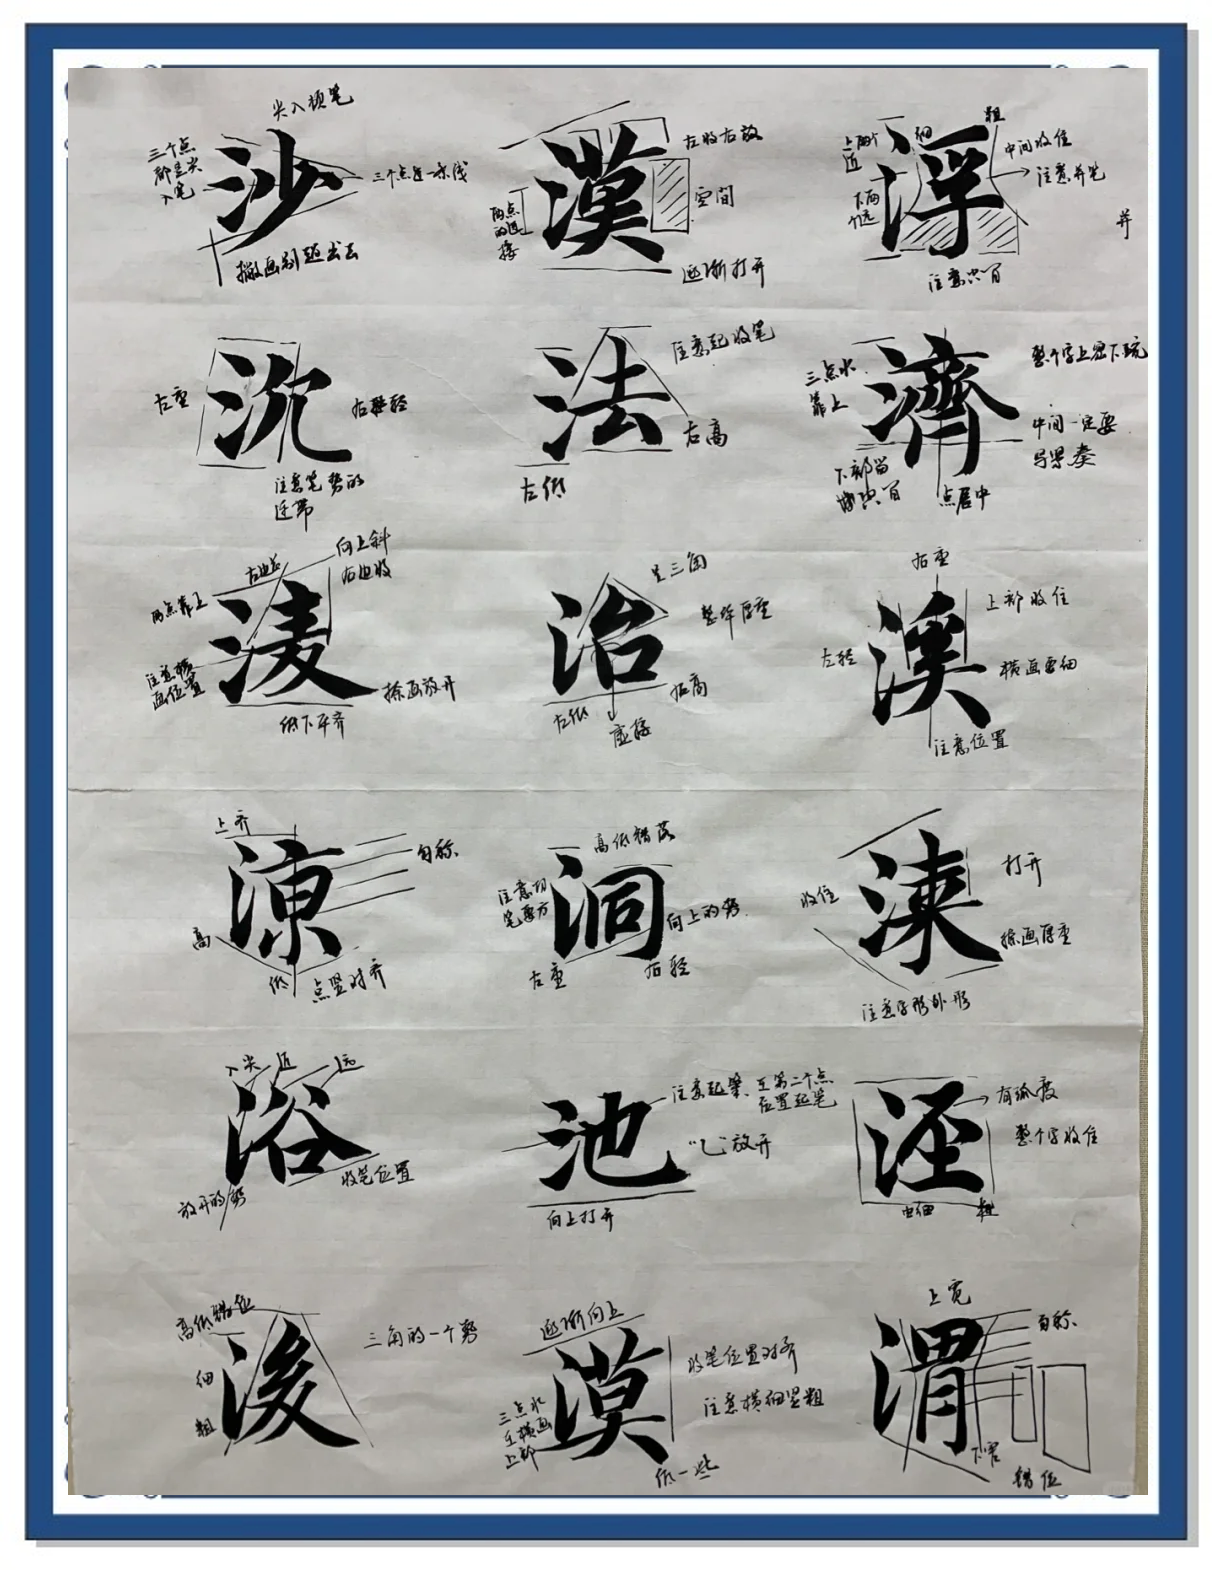 尖入顿笔
三个点
都是尖
入笔
沙
三个点连一条线
撇画别超出去
漢
左收右放
空间
两点
的连
接
逐渐打开
上两个
近
细
粗
浮
中间收住
注意并笔
下两
个远
并
注意共百
沉
左重
右轻
注意笔势的
连带
法
注意起收笔
右高
左低
濟
三点水
靠上
整个字上密下疏
中间一定要
写紧凑
下部留
点居中
向上斜
右边收
左边长
两点靠上
淒
注意横
画位置
捺画放开
低下平齐
治
呈三角
整体厚重
右高
左低
虚接
右重
溪
上部收住
左轻
横画要细
注意位置
上齐
涼
匀称
高
低
点竖对齐
高低错落
洞
注意切
笔要方
向上的势
左重
右轻
涷
打开
收住
捺画厚重
注意字形外形
入尖
近
远
浴
收笔位置
放开的势
池
注意起笔、在第二个点
位置起笔
"乚"放开
向上打开
涇
有弧度
整个字收住
细
粗
高低错位
浚
三角的一个势
细
粗
逐渐向上
漠
收笔位置对齐
注意横细竖粗
三点水
在横画
上部
低一些
上宽
渭
匀称
下窄
错位